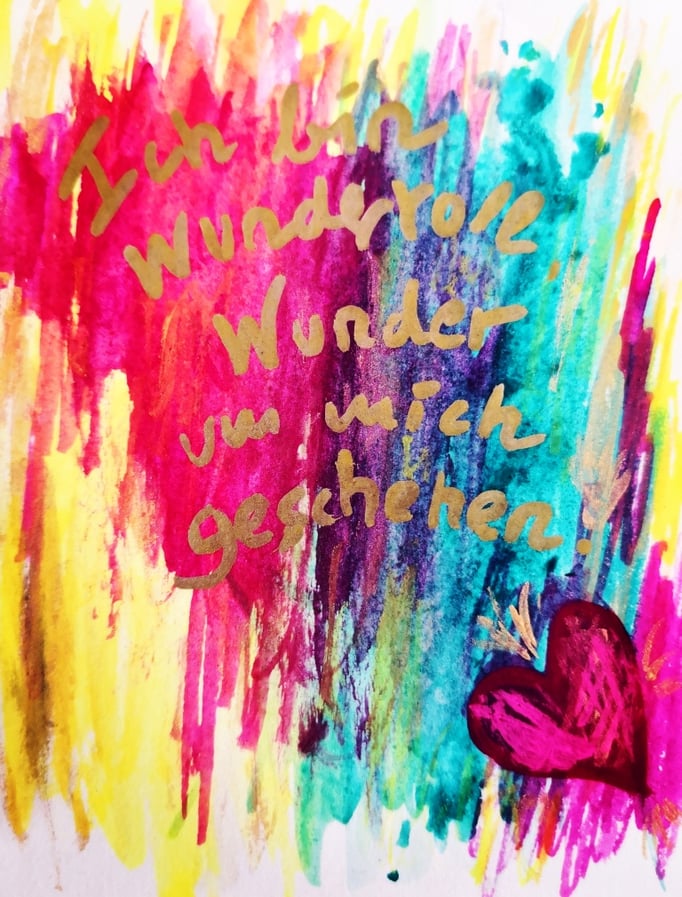 Ich bin
Wundervoll
Wunder
um mich
geschehen!